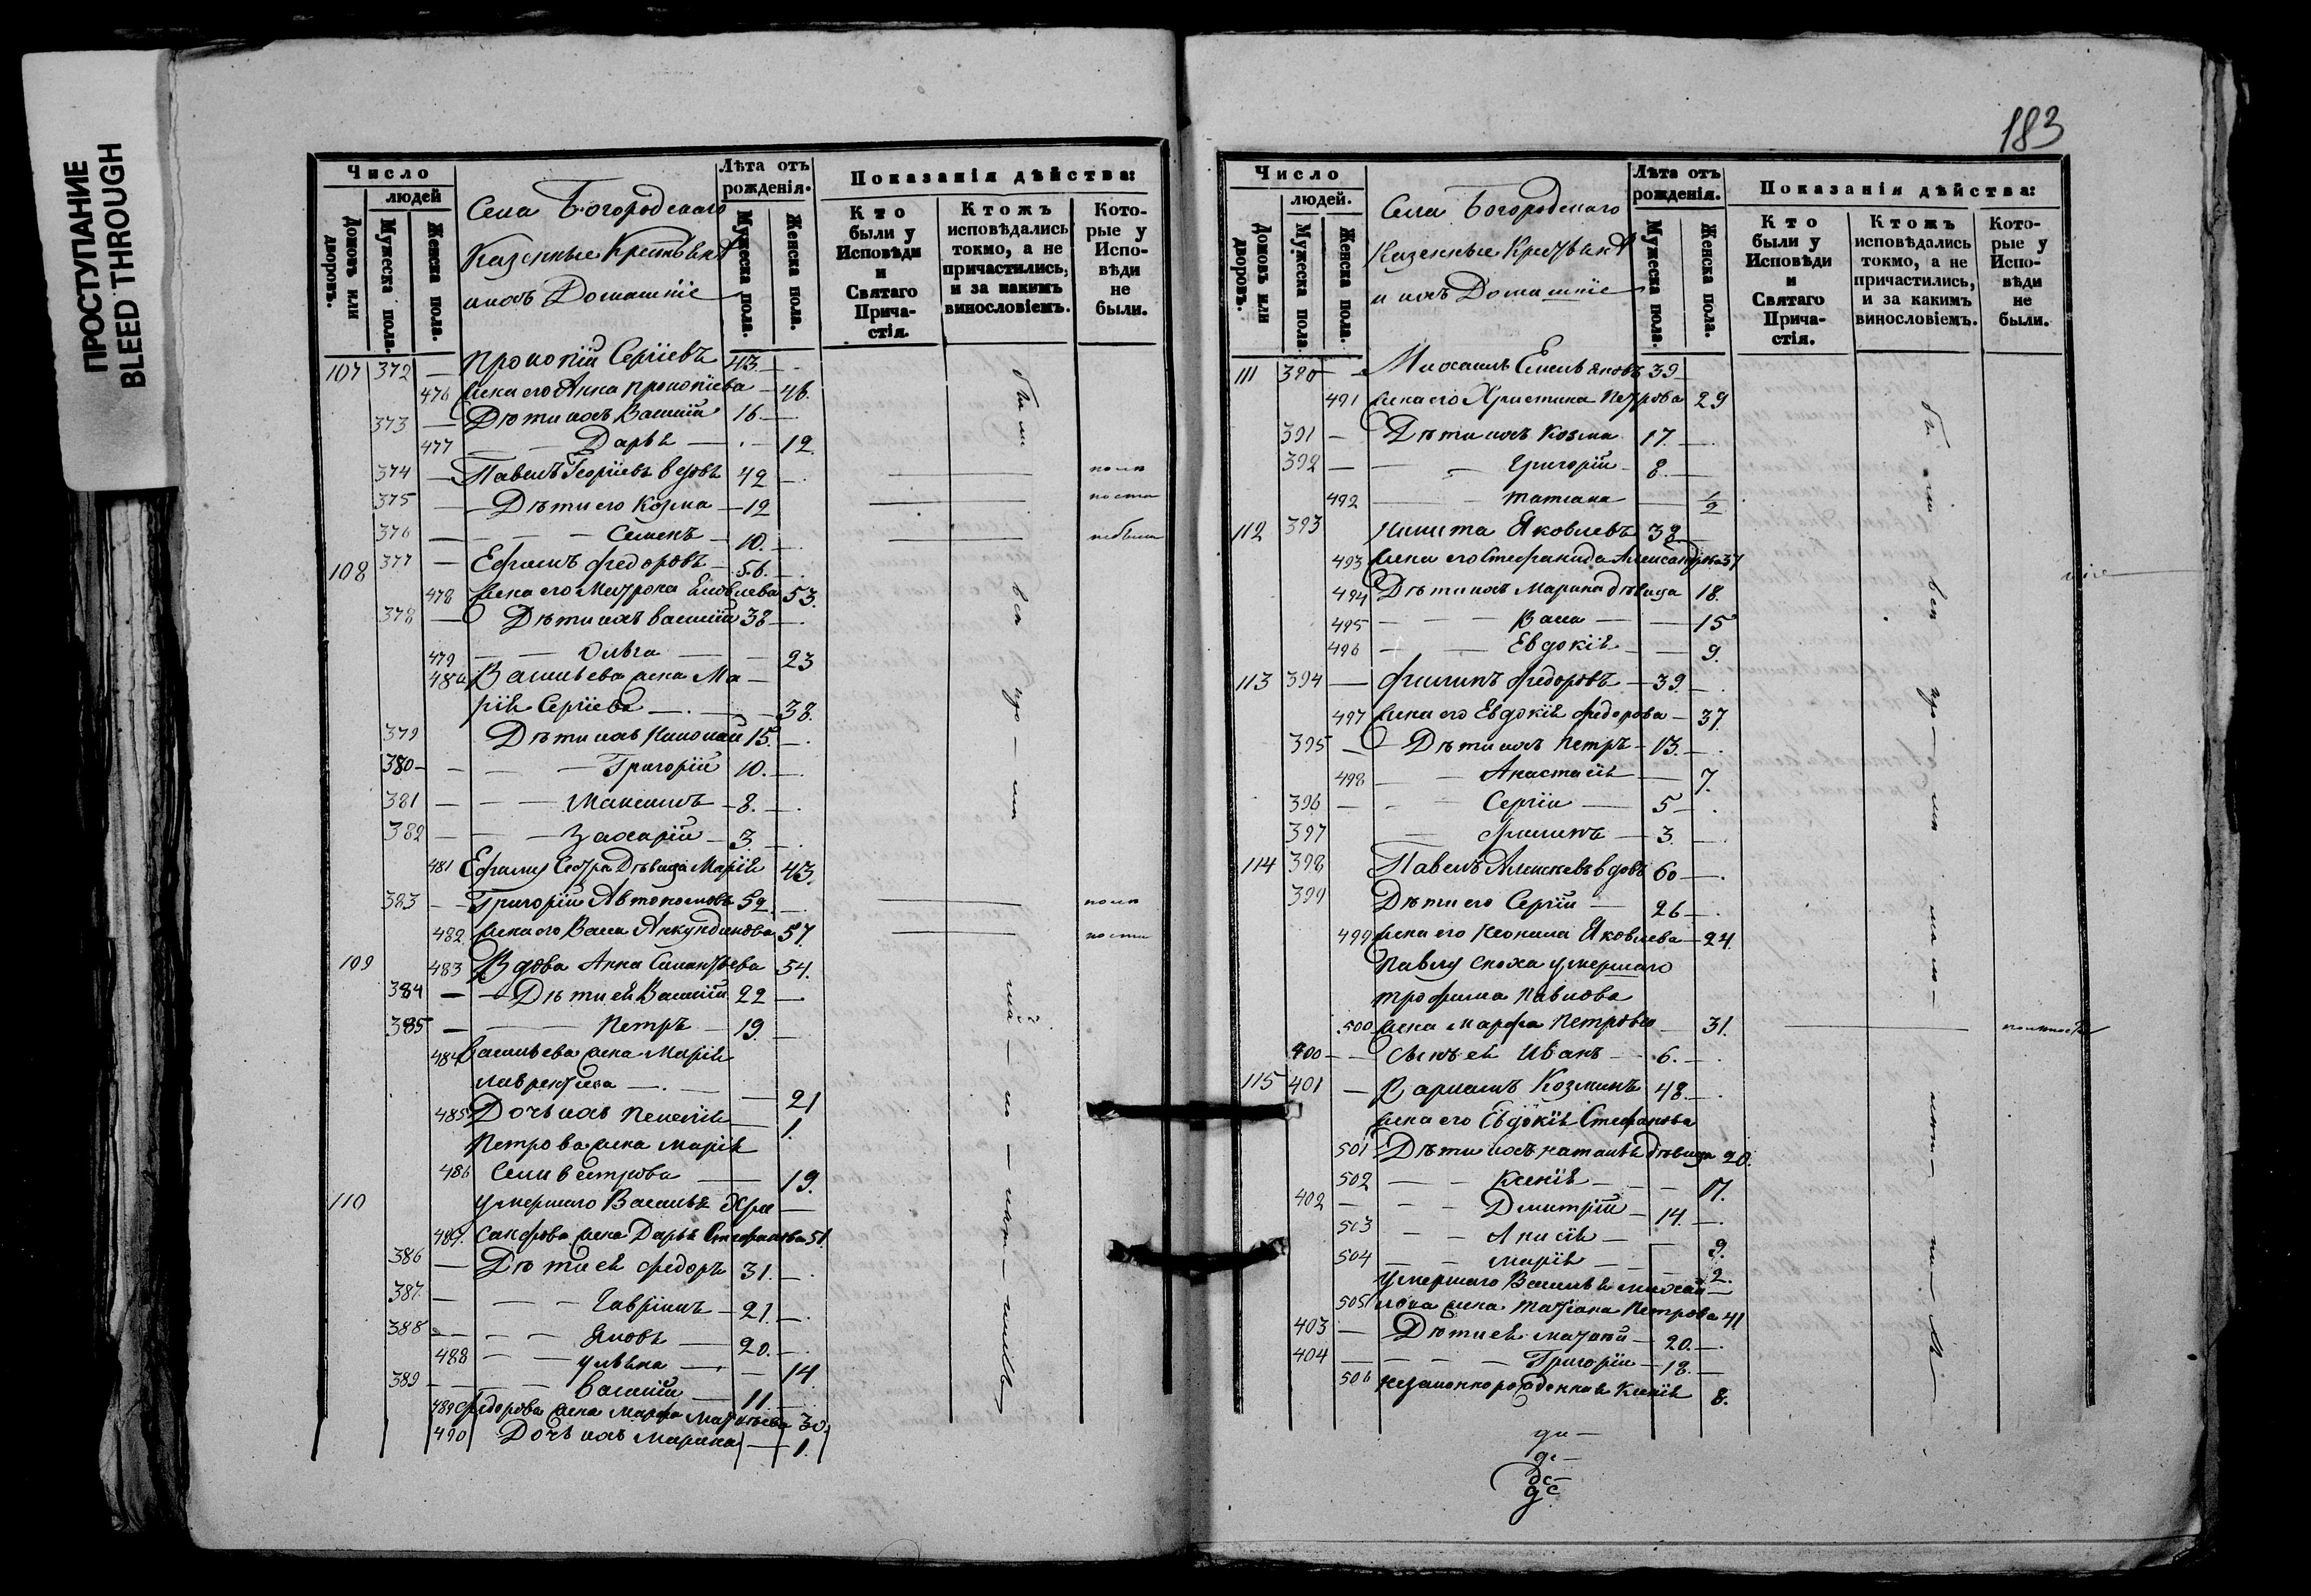 ПРОСТУПАНИЕ
BLEED THROUGH
Число
людей
Домовъ или дворовъ.
Мужеска пола.
Женска пола.
Села Богородскаго
Казенные Крестьяне
и ихъ Домашніе
Лѣта отъ рожденія.
Мужеска пола.
Женска пола.
Показанія дѣйства:
Кто были у Исповѣди и Святаго Причастія.
Ктожъ исповѣдались токмо, а не причастились, и за какимъ винословіемъ.
Которые у Исповѣди не были.
107 372 — Прокопій Сергіевъ 43. —
476 жена его Анна Прокопіева — 46.
373 — Дѣти ихъ Василій 16 —
477 — Дарья — 12.
374 — Павелъ Георгіевъ вдовъ 42 —
375 — Дѣти его Козма — 12
376 — Семенъ — 10. —
108 377 — Ефимъ Федоровъ — 56. —
478 жена его Матрона Яковлева 53.
378 — Дѣти ихъ Василій 38 —
479 — Ольга — 23
480 Васильева жена Ма—
рія Сергіева — 38.
379 Дѣти ихъ Николай 15. —
380 — Григорій 10. —
381 — Максимъ — 8. —
382 — Захарій — 3. —
481 Ефиму Сестра Дѣвица Марія 43.
383 — Григорій Автономовъ 52. —
482 жена его Васса Анкундинова 57.
109 483 Вдова Анна Силантьева 54.
384 — Дѣти ей Василій 22 —
385 — Петръ — 19. —
484 Васильева жена Марія
Лаврентьева — 21
485 Дочь ихъ Пелагія — 1.
Петрова жена Марія
486 Селивестрова — 19.
110 умершаго Василья Хри—
487. санфова жена Дарья Стефанова 51.
386 — Дѣти ей Федоръ 31. —
387. — Гавріилъ — 21. —
388 — Яковъ — 20. —
488 — Ульяна — 14
389 — Василій — 11 —
489 Федорова жена Марфа Матвѣева 30.
490 Дочь ихъ Марина — 1.
183
Число
людей.
Домовъ или дворовъ.
Мужеска пола.
Женска пола.
Села Богородскаго
Казенные Крестьяне
и ихъ Домашніе
Лѣта отъ рожденія.
Мужеска пола.
Женска пола.
Показанія дѣйства:
Кто были у Исповѣди и Святаго Причастія.
Ктожъ исповѣдались токмо, а не причастились, и за какимъ винословіемъ.
Которые у Исповѣди не были.
111 390 — Михаилъ Емельяновъ 39 —
491 жена его Христина Петрова 29
391 — Дѣти ихъ Козма 17. —
392 — Григорій 8. —
492 — Татиана — 1/2
112 393 Никита Яковлевъ 38 —
493 жена его Стефанида Александрова 37
494 Дѣти ихъ Марина дѣвица 18.
495 — Васса — 15
496 — Евдокія — 9.
113 394 — Филипъ Федоровъ — 39. —
497 жена его Евдокія Федорова — 37.
395 — Дѣти ихъ Петръ — 13. —
498 — Анастасія — 7.
396 — Сергій — 5 —
397 — Филипъ — 3. —
114 398 Павелъ Алексѣевъ вдовъ 60 —
399 Дѣти его Сергій — 26 —
499 жена его Неонила Яковлева — 24.
Павлу сноха умершаго
трофима Павлова
500 жена Марфа Петрова — 31.
400 — Сынъ ей Иванъ — 6. —
115 401 — Варламъ Козминъ 48. —
жена его Евдокія Стефанова
501 Дѣти ихъ Наталья дѣвица 20.
502 — Ксенія — 17.
402 — Дмитрій — 14. —
503 — Анисія — 9.
504 — Марія — 2.
умершаго Василья Михай—
505 лова жена Татіана Петрова 41
403 — Дѣти ей Матвѣй — 20. —
404 — Григорій — 18. —
506 незаконнорожденная Ксенія 8.